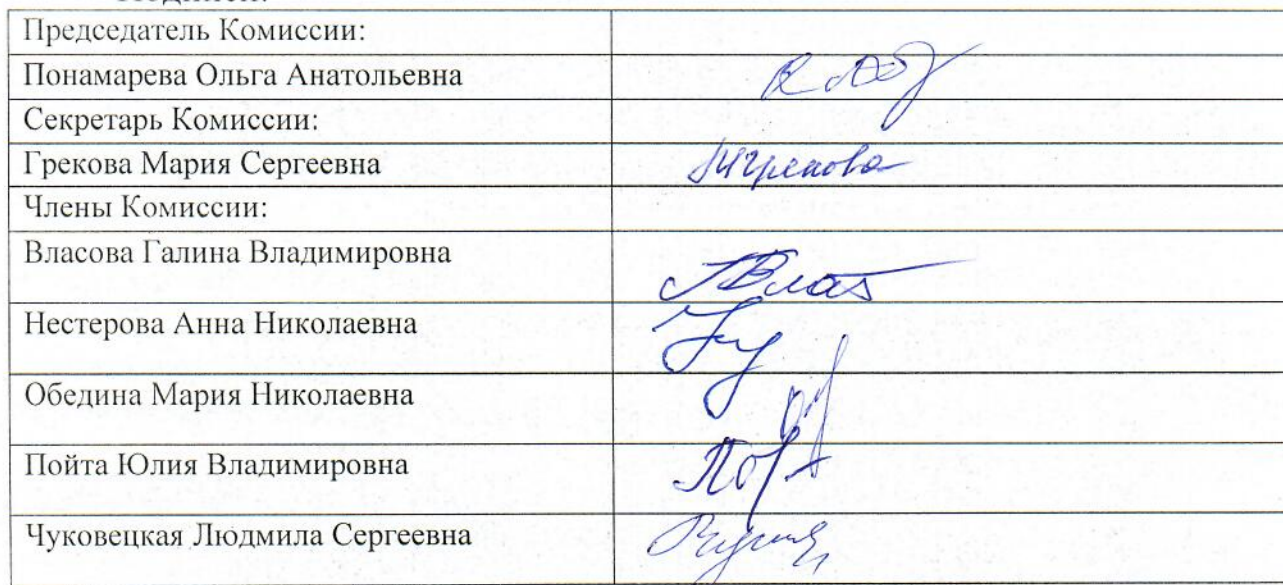 Председатель Комиссии:
Понамарева Ольга Анатольевна
Секретарь Комиссии:
Грекова Мария Сергеевна
Члены Комиссии:
Власова Галина Владимировна
Нестерова Анна Николаевна
Обедина Мария Николаевна
Пойта Юлия Владимировна
Чуковецкая Людмила Сергеевна